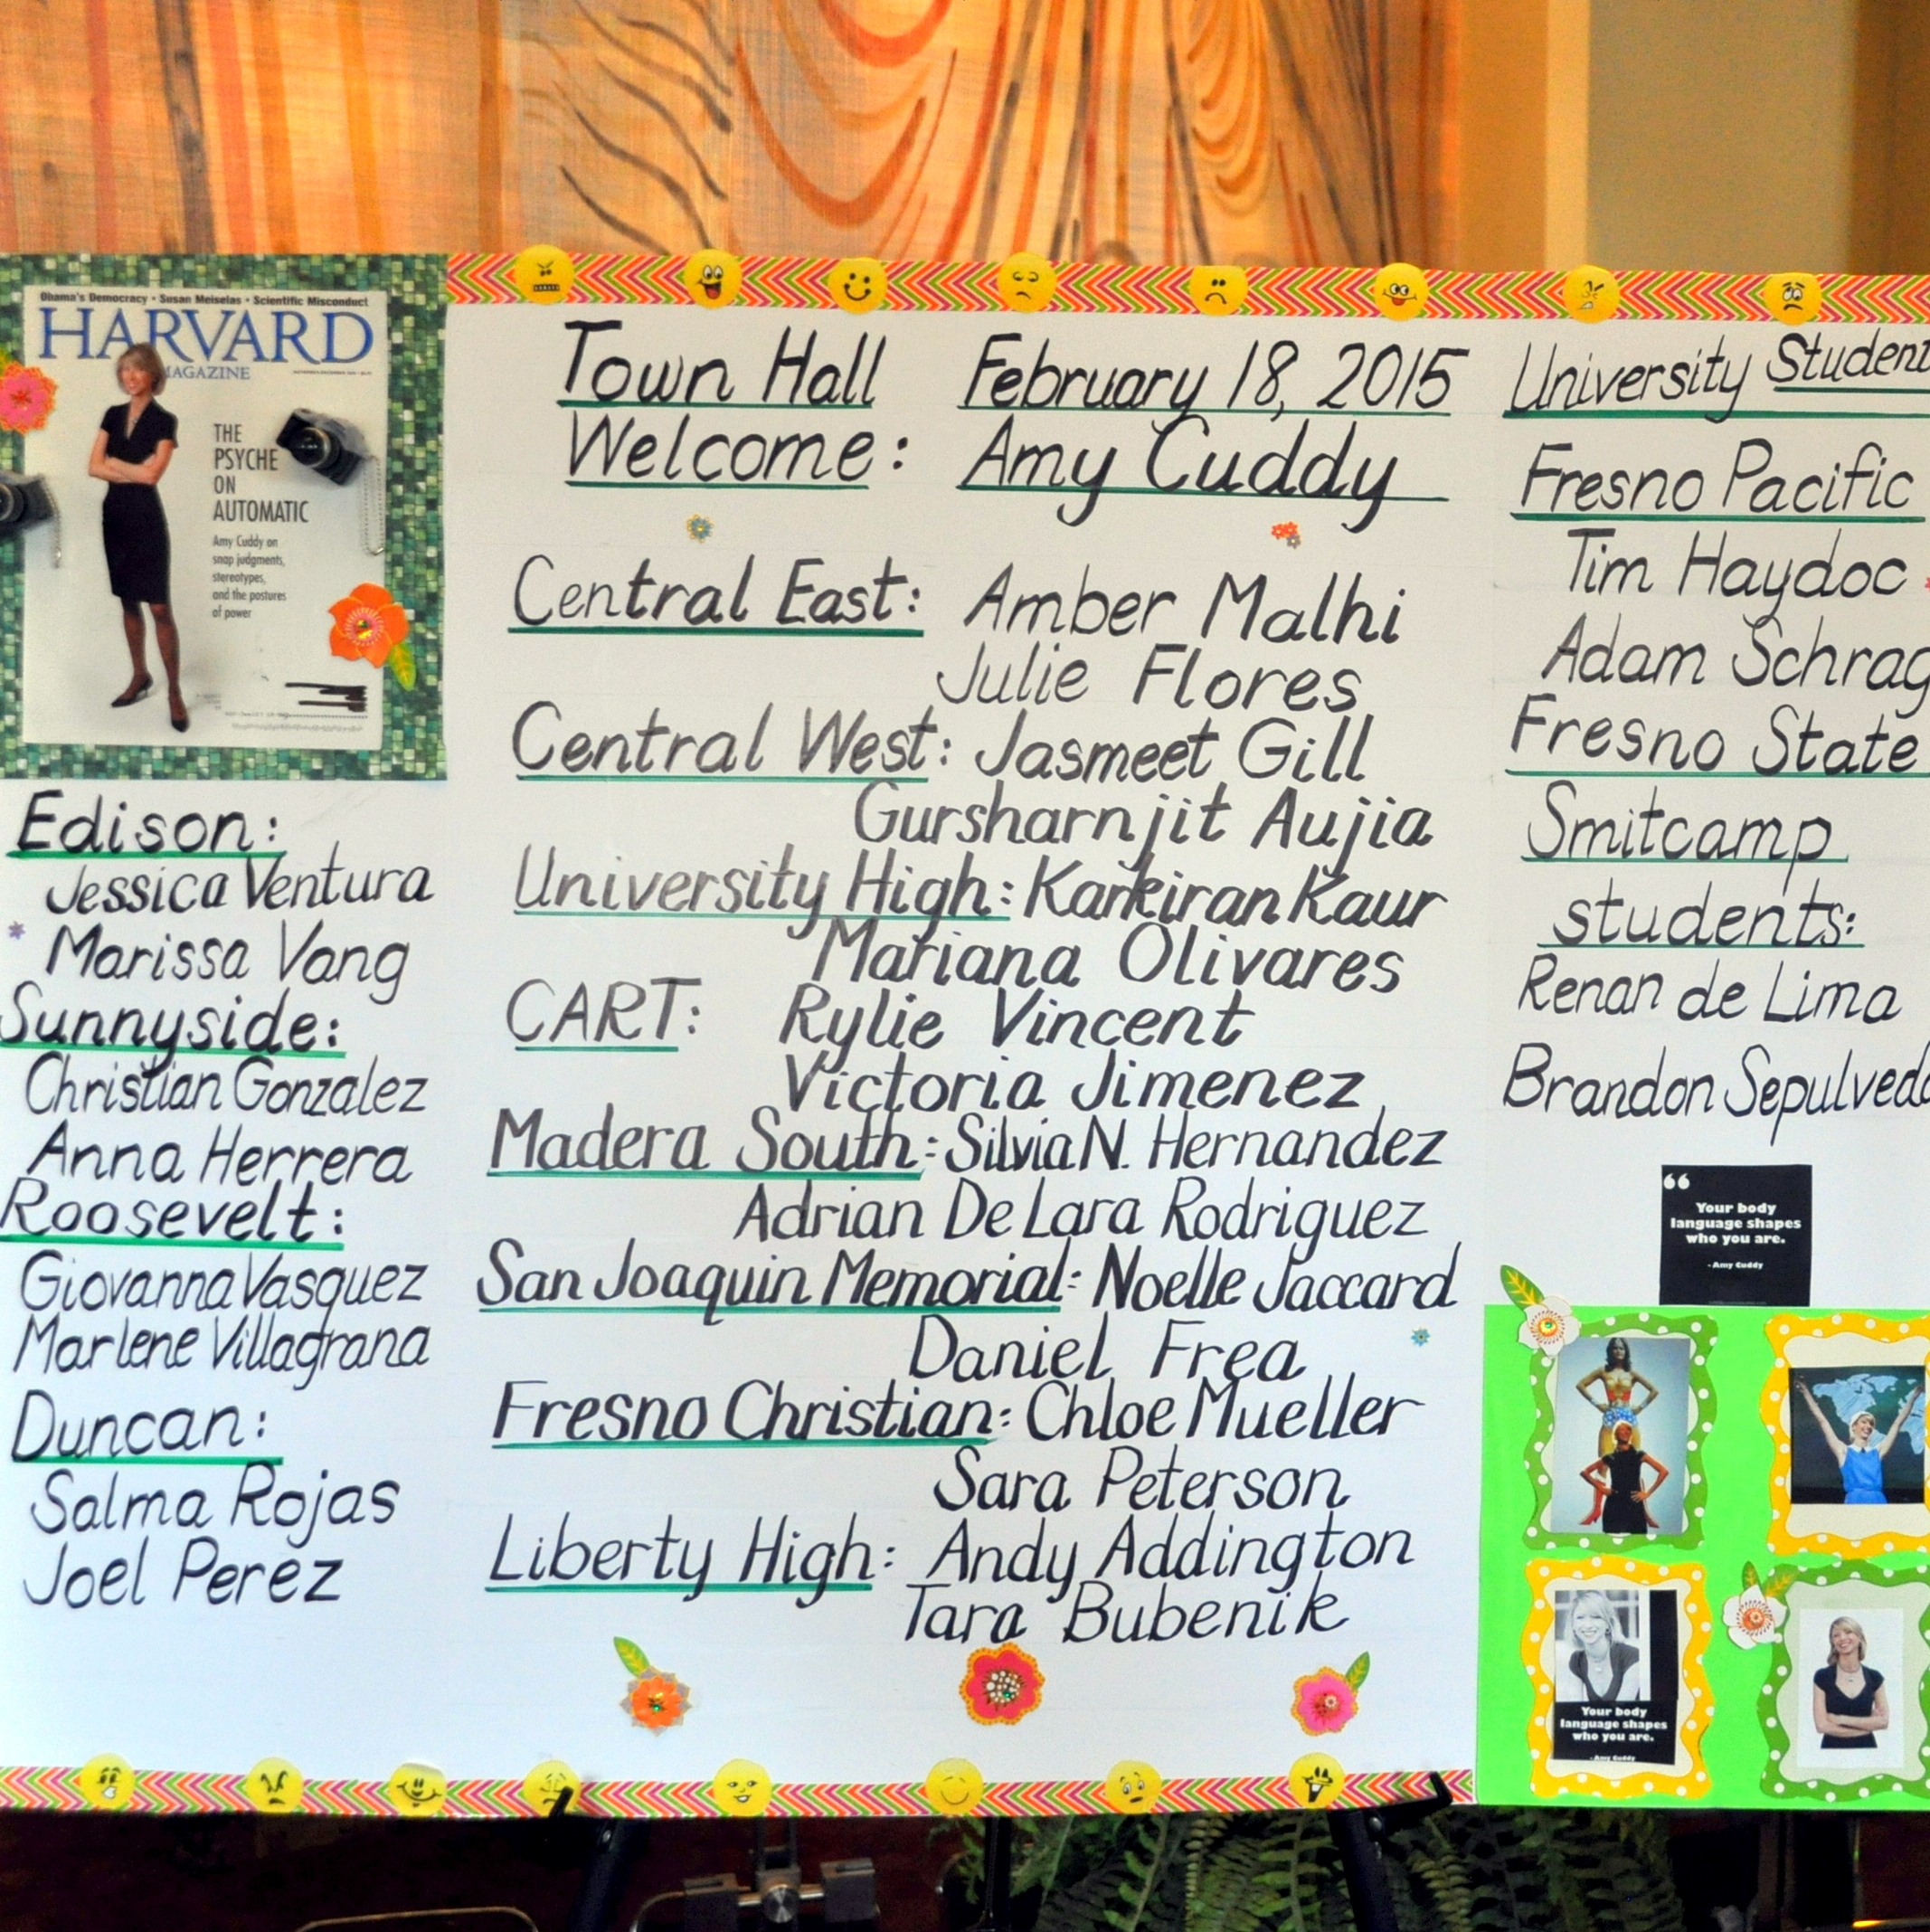 Obama's Democracy • Susan Meiselas • Scientific Misconduct
HARVARD
MAGAZINE
THE
PSYCHE
ON
AUTOMATIC
Amy Cuddy on
snap judgments,
stereotypes,
and the postures
of power
Edison:
Jessica Ventura
Marissa Vang
Sunnyside:
Christian Gonzalez
Anna Herrera
Roosevelt:
Giovanna Vasquez
Marlene Villagrana
Duncan:
Salma Rojas
Joel Perez
Town Hall February 18, 2015
Welcome: Amy Cuddy
Central East: Amber Malhi
Julie Flores
Central West: Jasmeet Gill
Gursharnjit Aujia
University High: Karkiran Kaur
Mariana Olivares
CART: Rylie Vincent
Victoria Jimenez
Madera South: Silvia N. Hernandez
Adrian De Lara Rodriguez
San Joaquin Memorial: Noelle Jaccard
Daniel Frea
Fresno Christian: Chloe Mueller
Sara Peterson
Liberty High: Andy Addington
Tara Bubenik
University Student
Fresno Pacific
Tim Haydoc
Adam Schrag
Fresno State
Smitcamp
students:
Renan de Lima
Brandon Sepulveda
“
Your body
language shapes
who you are.
- Amy Cuddy
Your body
language shapes
who you are.
- Amy Cuddy